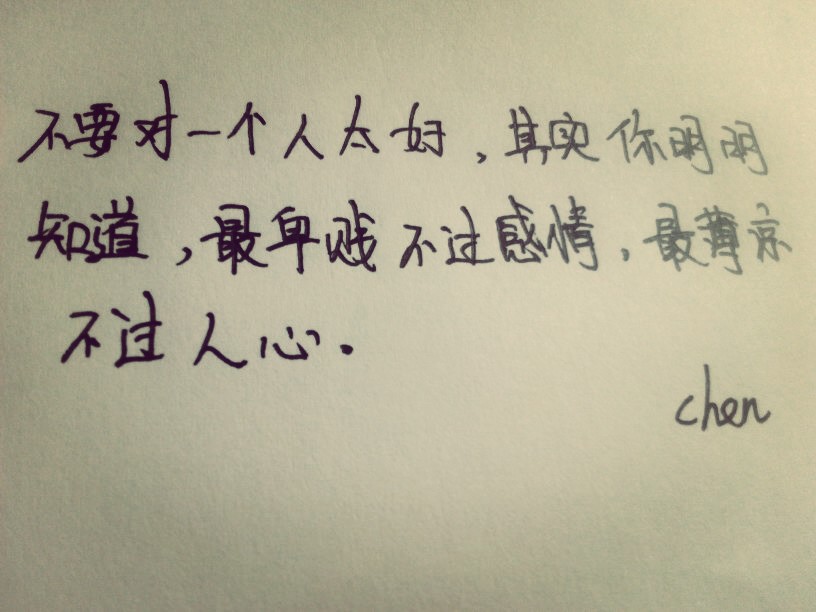 不要对一个人太好，其实你明明
知道，最卑贱不过感情，最薄凉
不过人心。
chen